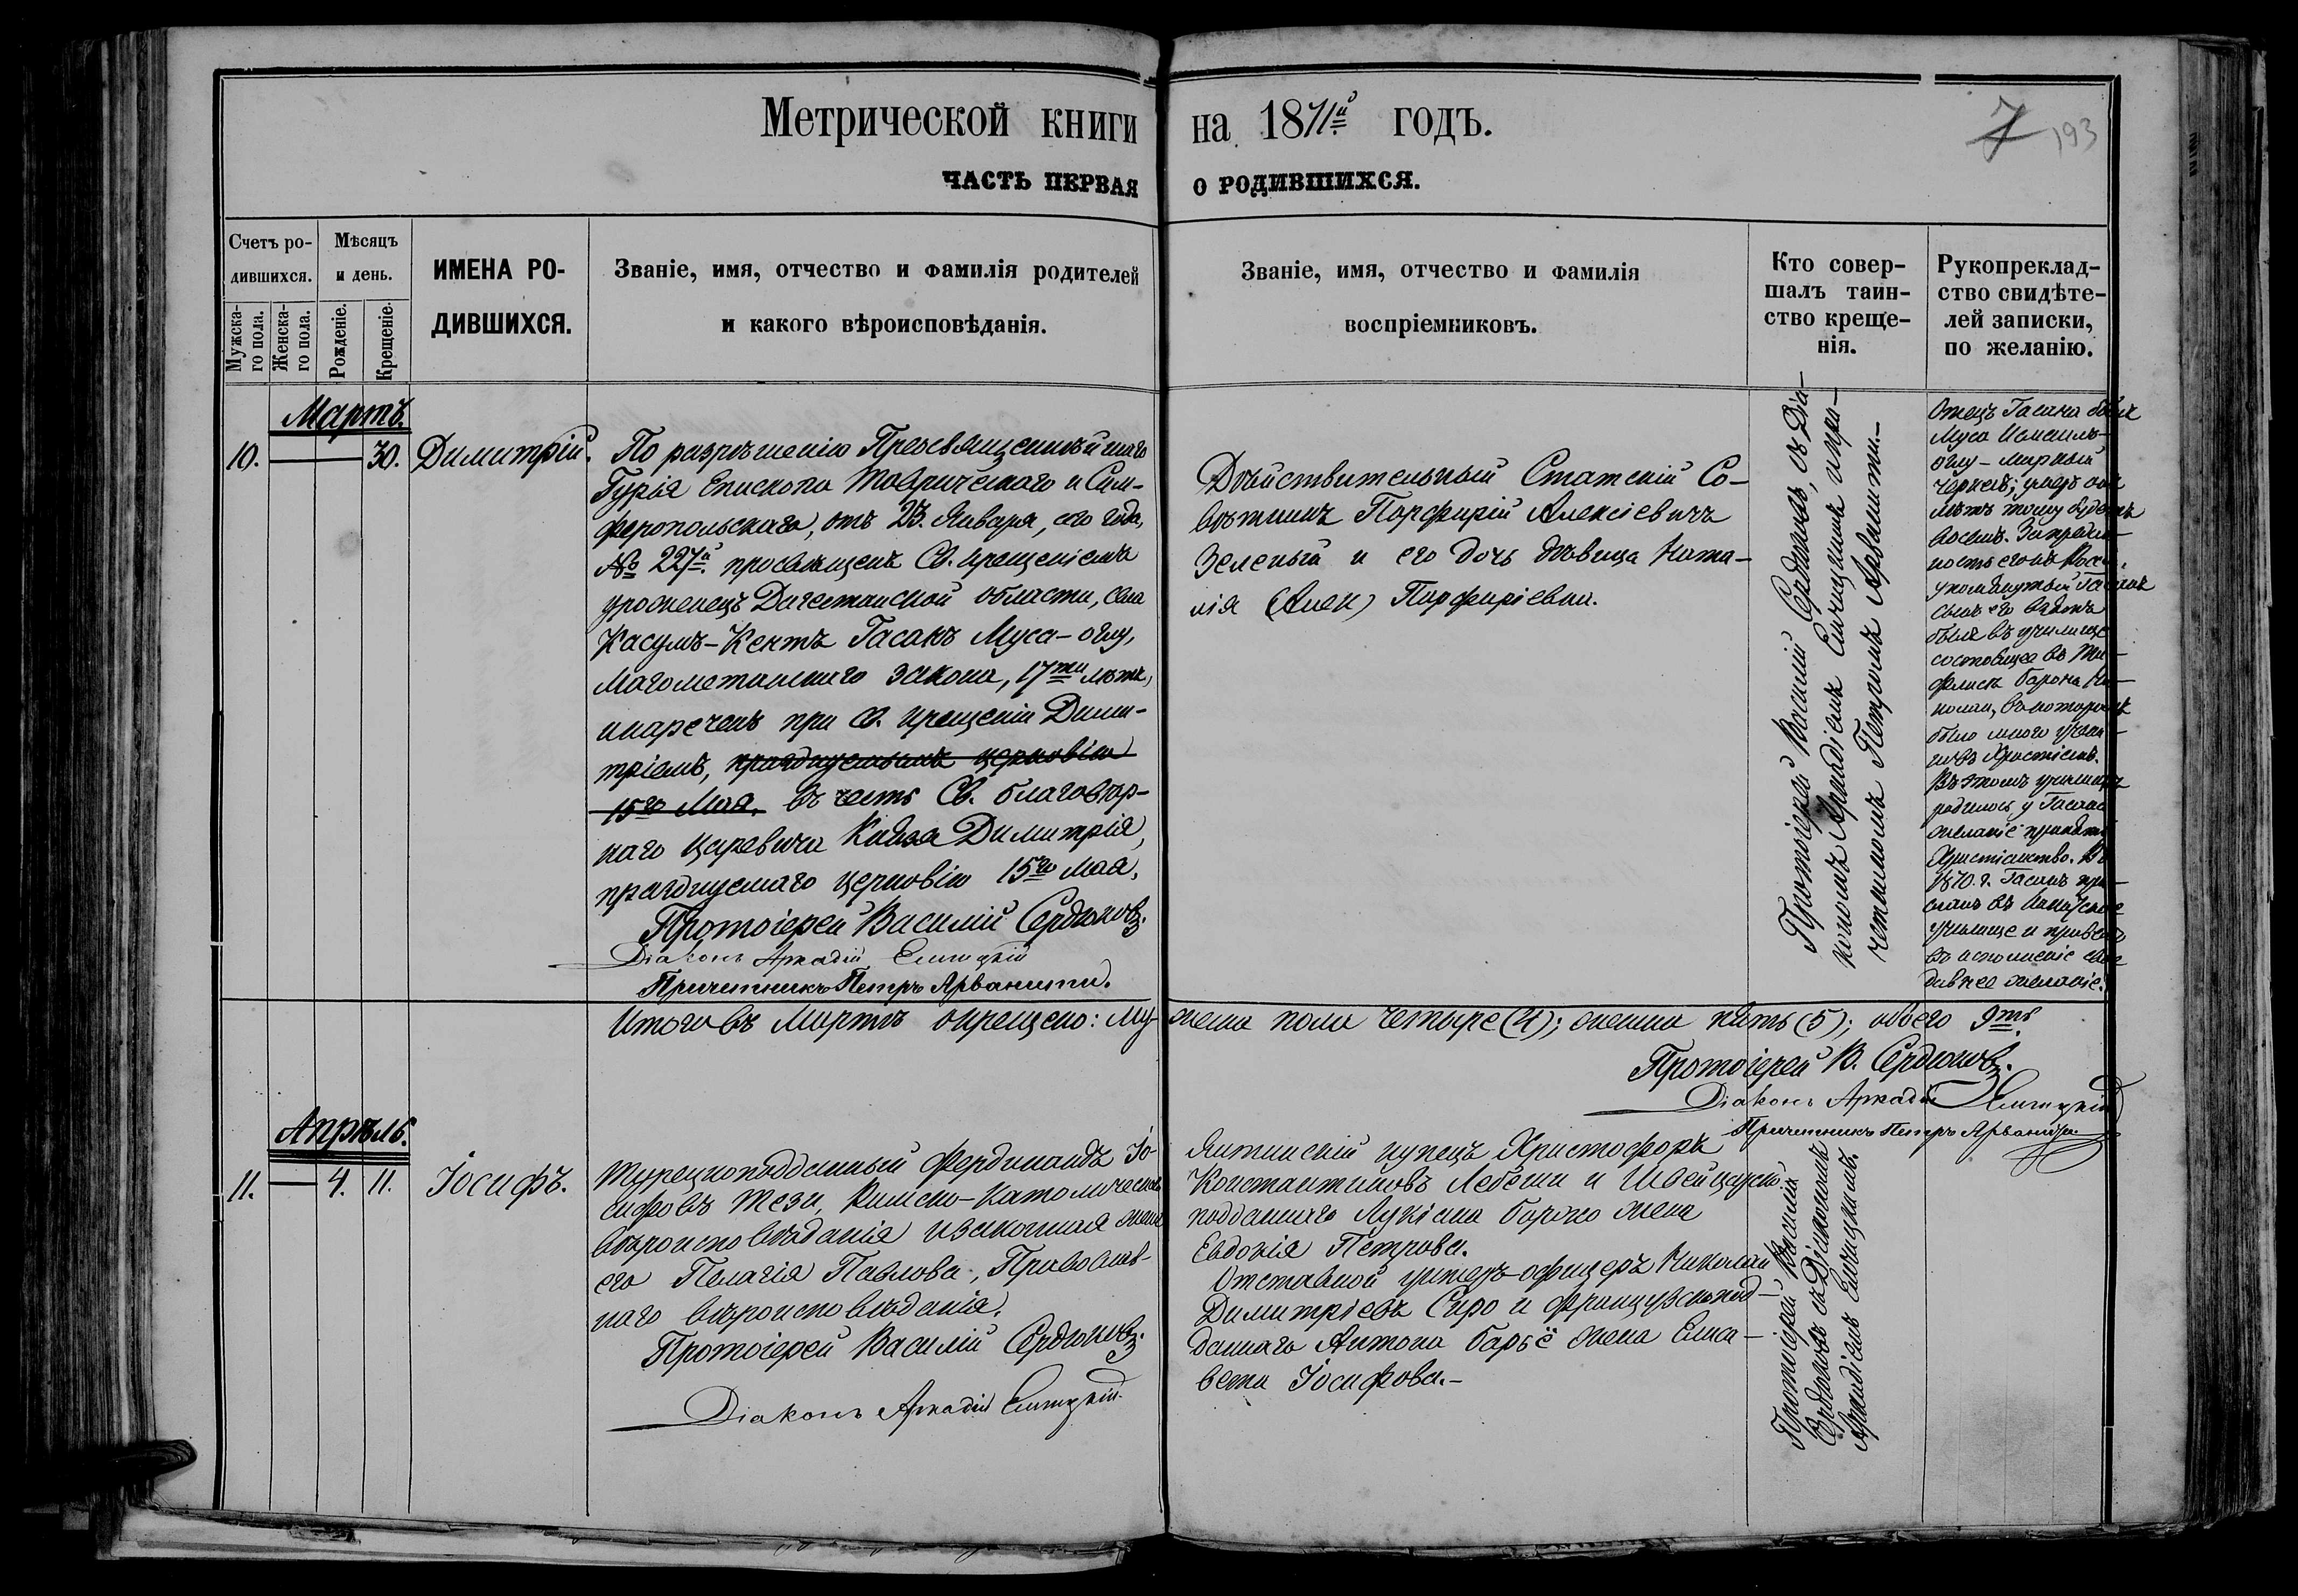 Метрической книги на 1871й годъ.
7 193
ЧАСТЬ ПЕРВАЯ О РОДИВШИХСЯ.
Счетъ ро-
дившихся.
Мужска-
го пола.
Женска-
го пола.
Мѣсяцъ
и день.
Рожденіе.
Крещеніе.
ИМЕНА РО-
ДИВШИХСЯ.
Званіе, имя, отчество и фамилія родителей
и какого вѣроисповѣданія.
Званіе, имя, отчество и фамилія
воспріемниковъ.
Кто совер-
шалъ таин-
ство креще-
нія.
Рукопреклад-
ство свидѣте-
лей записки,
по желанію.
Мартъ.
10. 30. Димитрій.
По разрѣшенію Преосвященнѣйшаго
Гурія Епископа Таврическаго и Сим-
феропольскаго, отъ 23. Января, сего года,
№ 227й. просвѣщенъ Св. крещеніемъ
уроженецъ Дагестанской области, села
Касумъ-Кентъ Гасанъ Муса-оглу,
Магометанскаго закона, 17ти лѣтъ,
и нареченъ при св. крещеніи Дими-
тріемъ, празднуемымъ церковію
15го Мая. въ честь Св. благовѣр-
наго Царевича Князя Димитрія,
празднуемаго церковію 15го мая.
Протоіерей Василій Сердюковъ.
Діаконъ Аркадій Ельчицкій
Причетникъ Петръ Арванити.
Дѣйствительный Статскій Со-
вѣтникъ Порфирій Алексіевичъ
Зеленый и его дочь дѣвица Ната-
лія Порфиріевна.
Протоіерей Василій Сердюковъ, съ Діа-
кономъ Аркадіемъ Ельчицкимъ и при-
четникомъ Петромъ Арванити.-
Отецъ Гасана былъ
Муса Исмаилъ-
оглу - мирный
черкесъ;
лѣтъ тому будетъ
восемь.
упомянутый Гасанъ
сынъ его
былъ въ училище
состоящее въ Ти-
флисѣ барона Ни-
колаи, въ которомъ
было много учени-
ковъ Христіанъ.
Въ этомъ училищѣ
родилось у Гасана
желаніе принять
Христіанство. Въ
1870. г. Гасанъ при-
сланъ въ
училище и привелъ
въ исполненіе свое
давнее желаніе.
Итого въ Мартѣ окрещено: му-жеска пола четыре (4); женска пять (5); обоего 9ть.
Протоіерей В. Сердюковъ.
Діаконъ Аркадій Ельчицкій
Причетникъ Петръ Арванити
Апрѣль.
11. 4. 11. Іосифъ.
Турецкоподданный Фердинандъ Іо-
сифовъ Тези, Римско-католическаго
вѣроисповѣданія и законная жена
его Пелагія Павлова, Православ-
наго вѣроисповѣданія.
Протоіерей Василій Сердюковъ.
Діаконъ Аркадій Ельчицкій.
Ялтинскій купецъ Христофоръ
Константиновъ Лебеши и Швейцарско-
подданнаго Лукіана жена
Евдокія Петрова.
Отставной унтеръ-офицеръ Николай
Димитріевъ Сиро и французскопод-
даннаго Антона Барьё жена Елиса-
вета Іосифова.-
Протоіерей Василій
Сердюковъ съ Діакономъ
Аркадіемъ Ельчицкимъ.